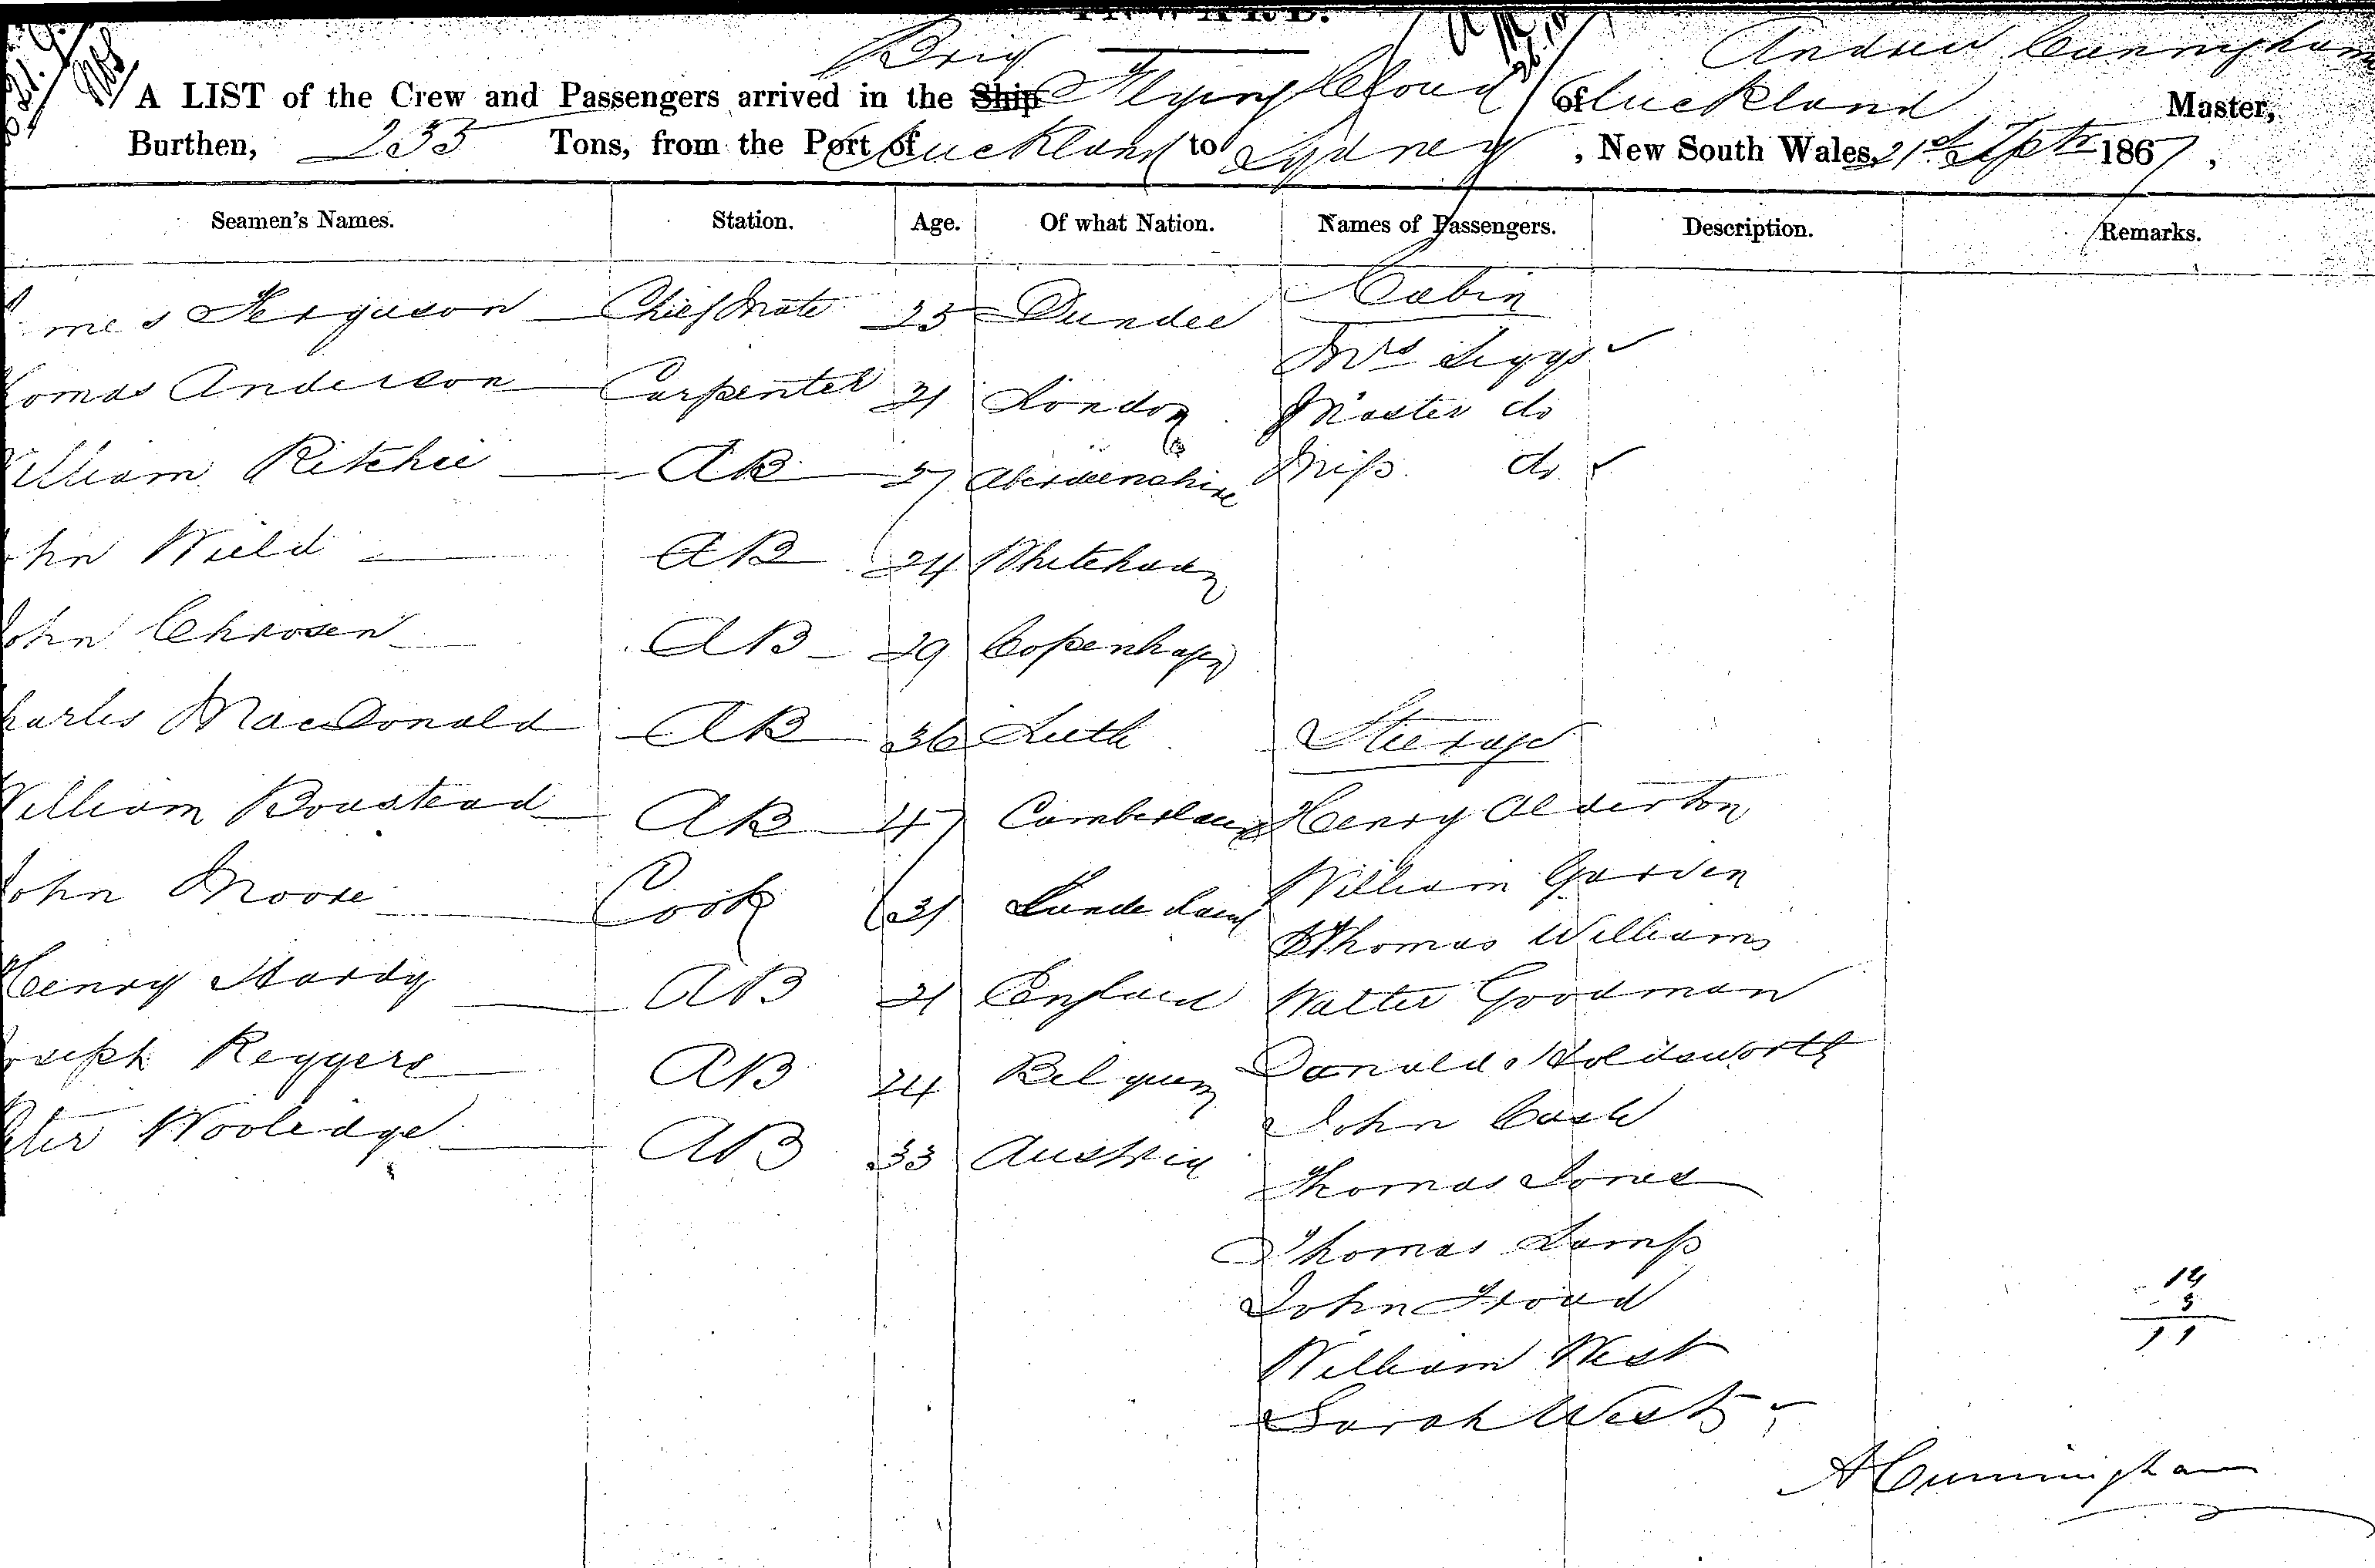 INWARD.
Brig Andrew Cunningham
A LIST of the Crew and Passengers arrived in the Ship Flying Cloud of Auckland Master,
Burthen, 235 Tons, from the Port of Auckland to Sydney, New South Wales, 21st Septr 1867,
Seamen's Names. Station. Age. Of what Nation. Names of Passengers. Description. Remarks.
Cabin
mes Ferguson Chief Mate 25 Dundee
Mrs Siggs
homas Anderson Carpenter 21 London Master do
William Ritchie AB 27 Aberdeenshire Miss do
hn Wield AB 24 Whitehaven
John Chrosen AB 29 Copenhagen
harles MacDonald AB 36 Leith Steerage
William Boustead AB 47 Cumberland Henry Alderton
John Moore Cook 31 Sunderland William Garden
Thomas Williams
Henry Hardy AB 21 England Walter Goodman
oseph Reggers AB 24 Belgium Donald Holdsworth
John Cash
Peter Wooledge AB 33 Austria
Thomas Jones
Thomas Lamp
John Froud
William West
Sarah West
14
3
11
A Cunningham